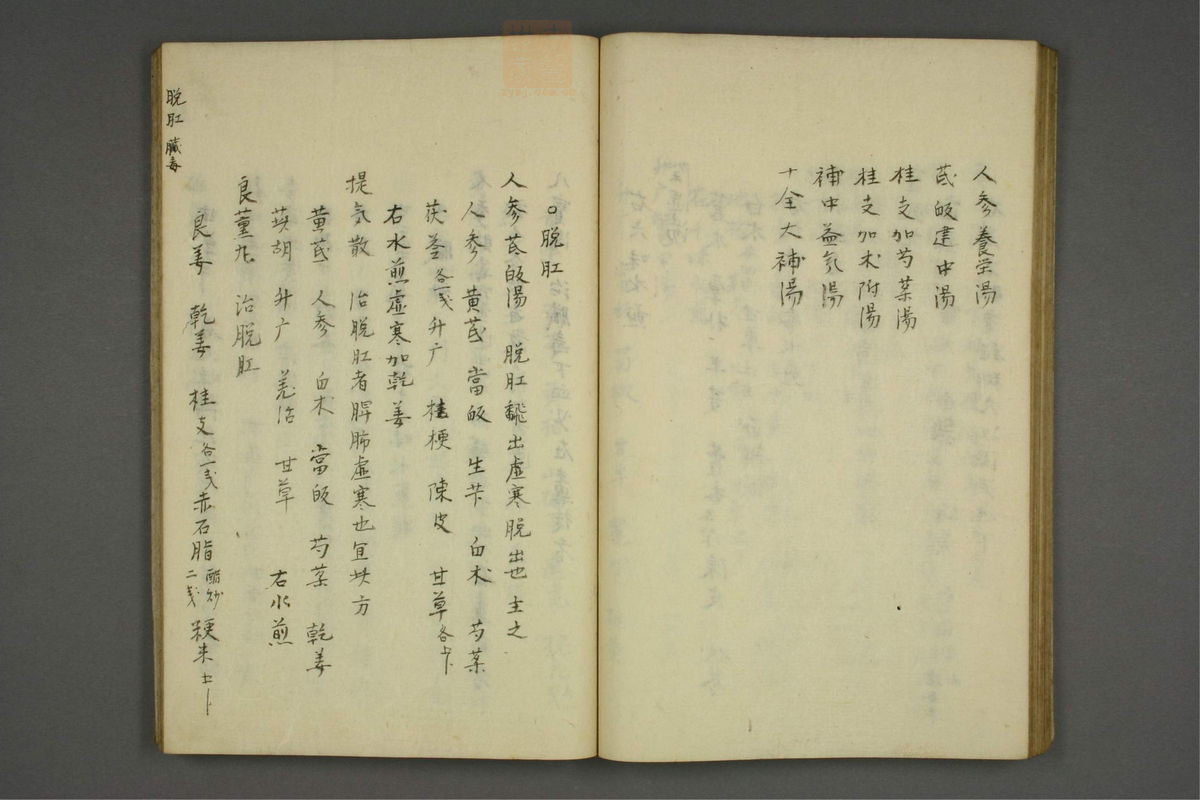 人参養栄湯
芪皈建中湯
桂支加芍薬湯
桂支加朮附湯
補中益気湯
十全大補湯
○脱肛
人参芪皈湯 脱肛翻出虚寒脱出也主之
人参 黄芪 當皈 生苄 白朮 芍薬
茯苓各一戋 升广 桂梗 陳皮 甘草各
右水煎虚寒加乾姜
提気散 治脱肛者脾肺虚寒也宜此方
黄芪 人参 白朮 當皈 芍薬 乾姜
升广 羌活 甘草 右水煎
良薑丸 治脱肛
良姜 乾姜 桂支各一戋 赤石脂醋炒二戋 粳米
脱肛 臓毒